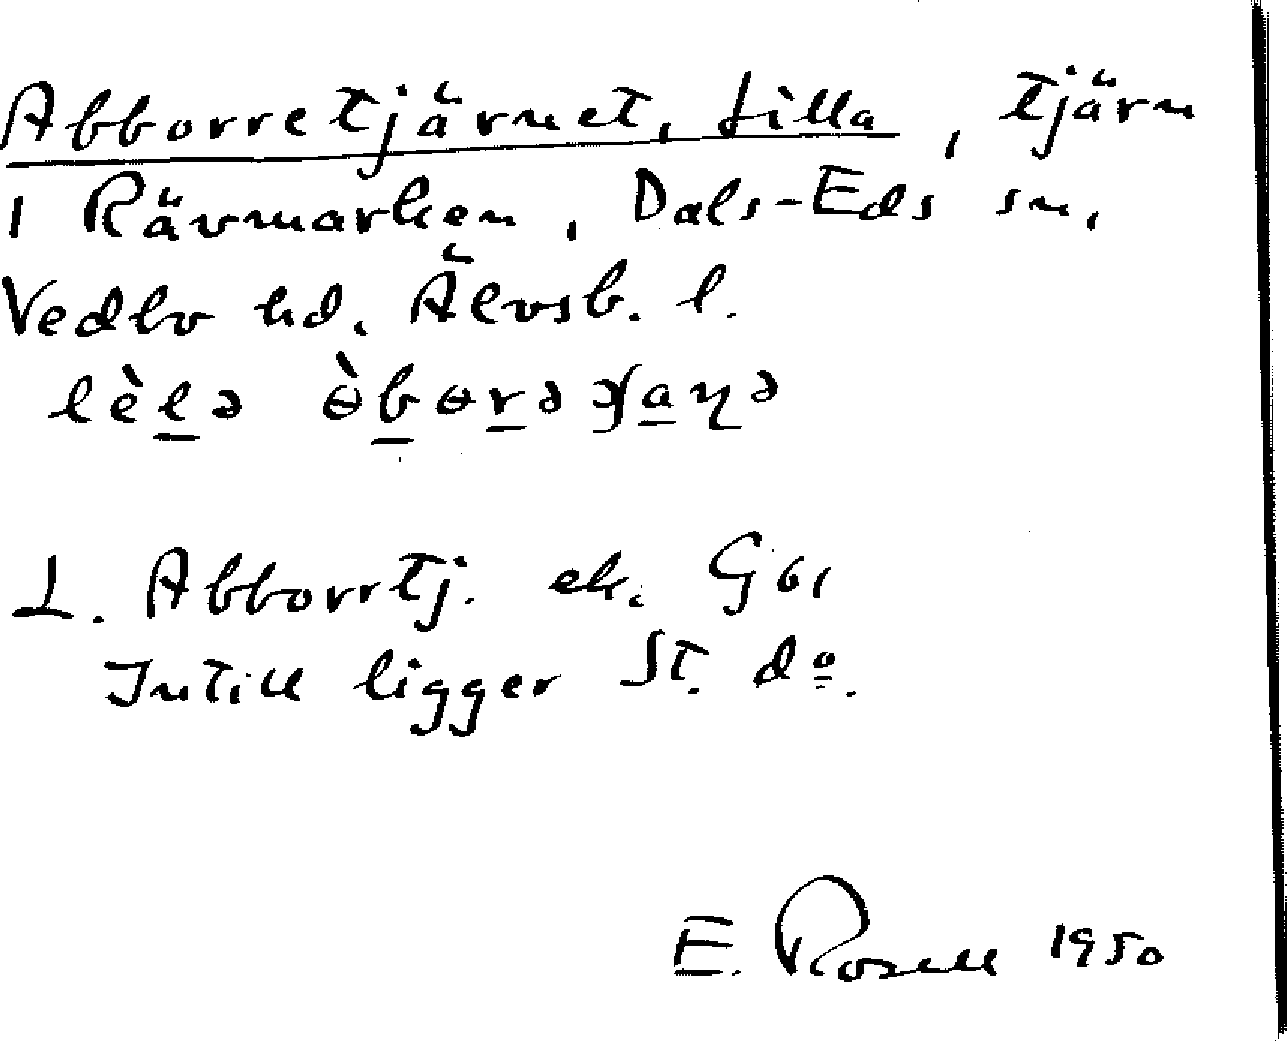 Abborretjärnet, Lilla, tjärn
i Rävmarken, Dals-Eds sn,
Vedbo hd. Älvsb. l.
lèlə
L. Abborrtj. ek. G 61
Intill ligger St. dº.
E. Rosell 1950